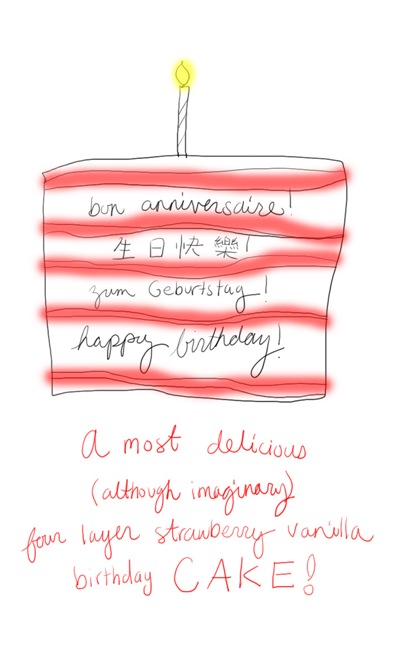 bon anniversaire!
生日快樂!
zum Geburtstag!
happy birthday!
a most delicious
(although imaginary)
four layer strawberry vanilla
birthday CAKE!